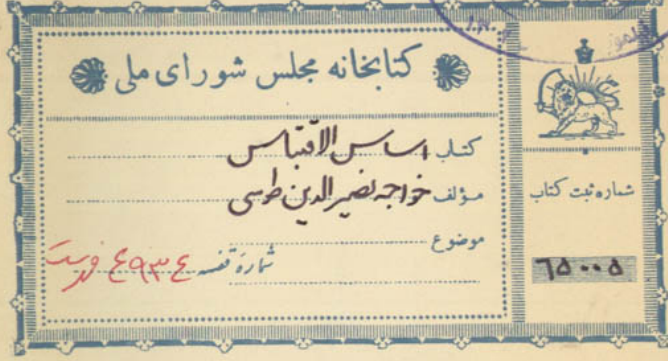 کتابخانه مجلس شورای ملی
کتاب اساس الاقتباس
مؤلف خواجه نصیر الدین طوسی
موضوع
شمارهٔ قفسه ٤٩٣٤ فهرست
شماره ثبت کتاب
٦٥٠٠٥